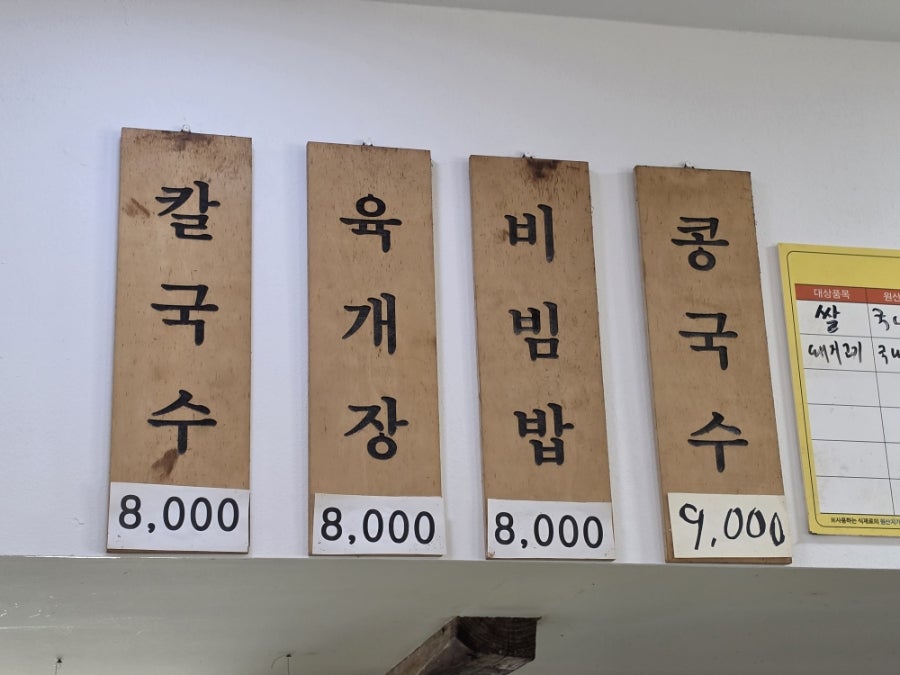 칼국수
8,000
육개장
8,000
비빔밥
8,000
콩국수
9,000
대상품목 원산
쌀 국내
돼지고기 국내
※사용하는 식재료의 원산지가